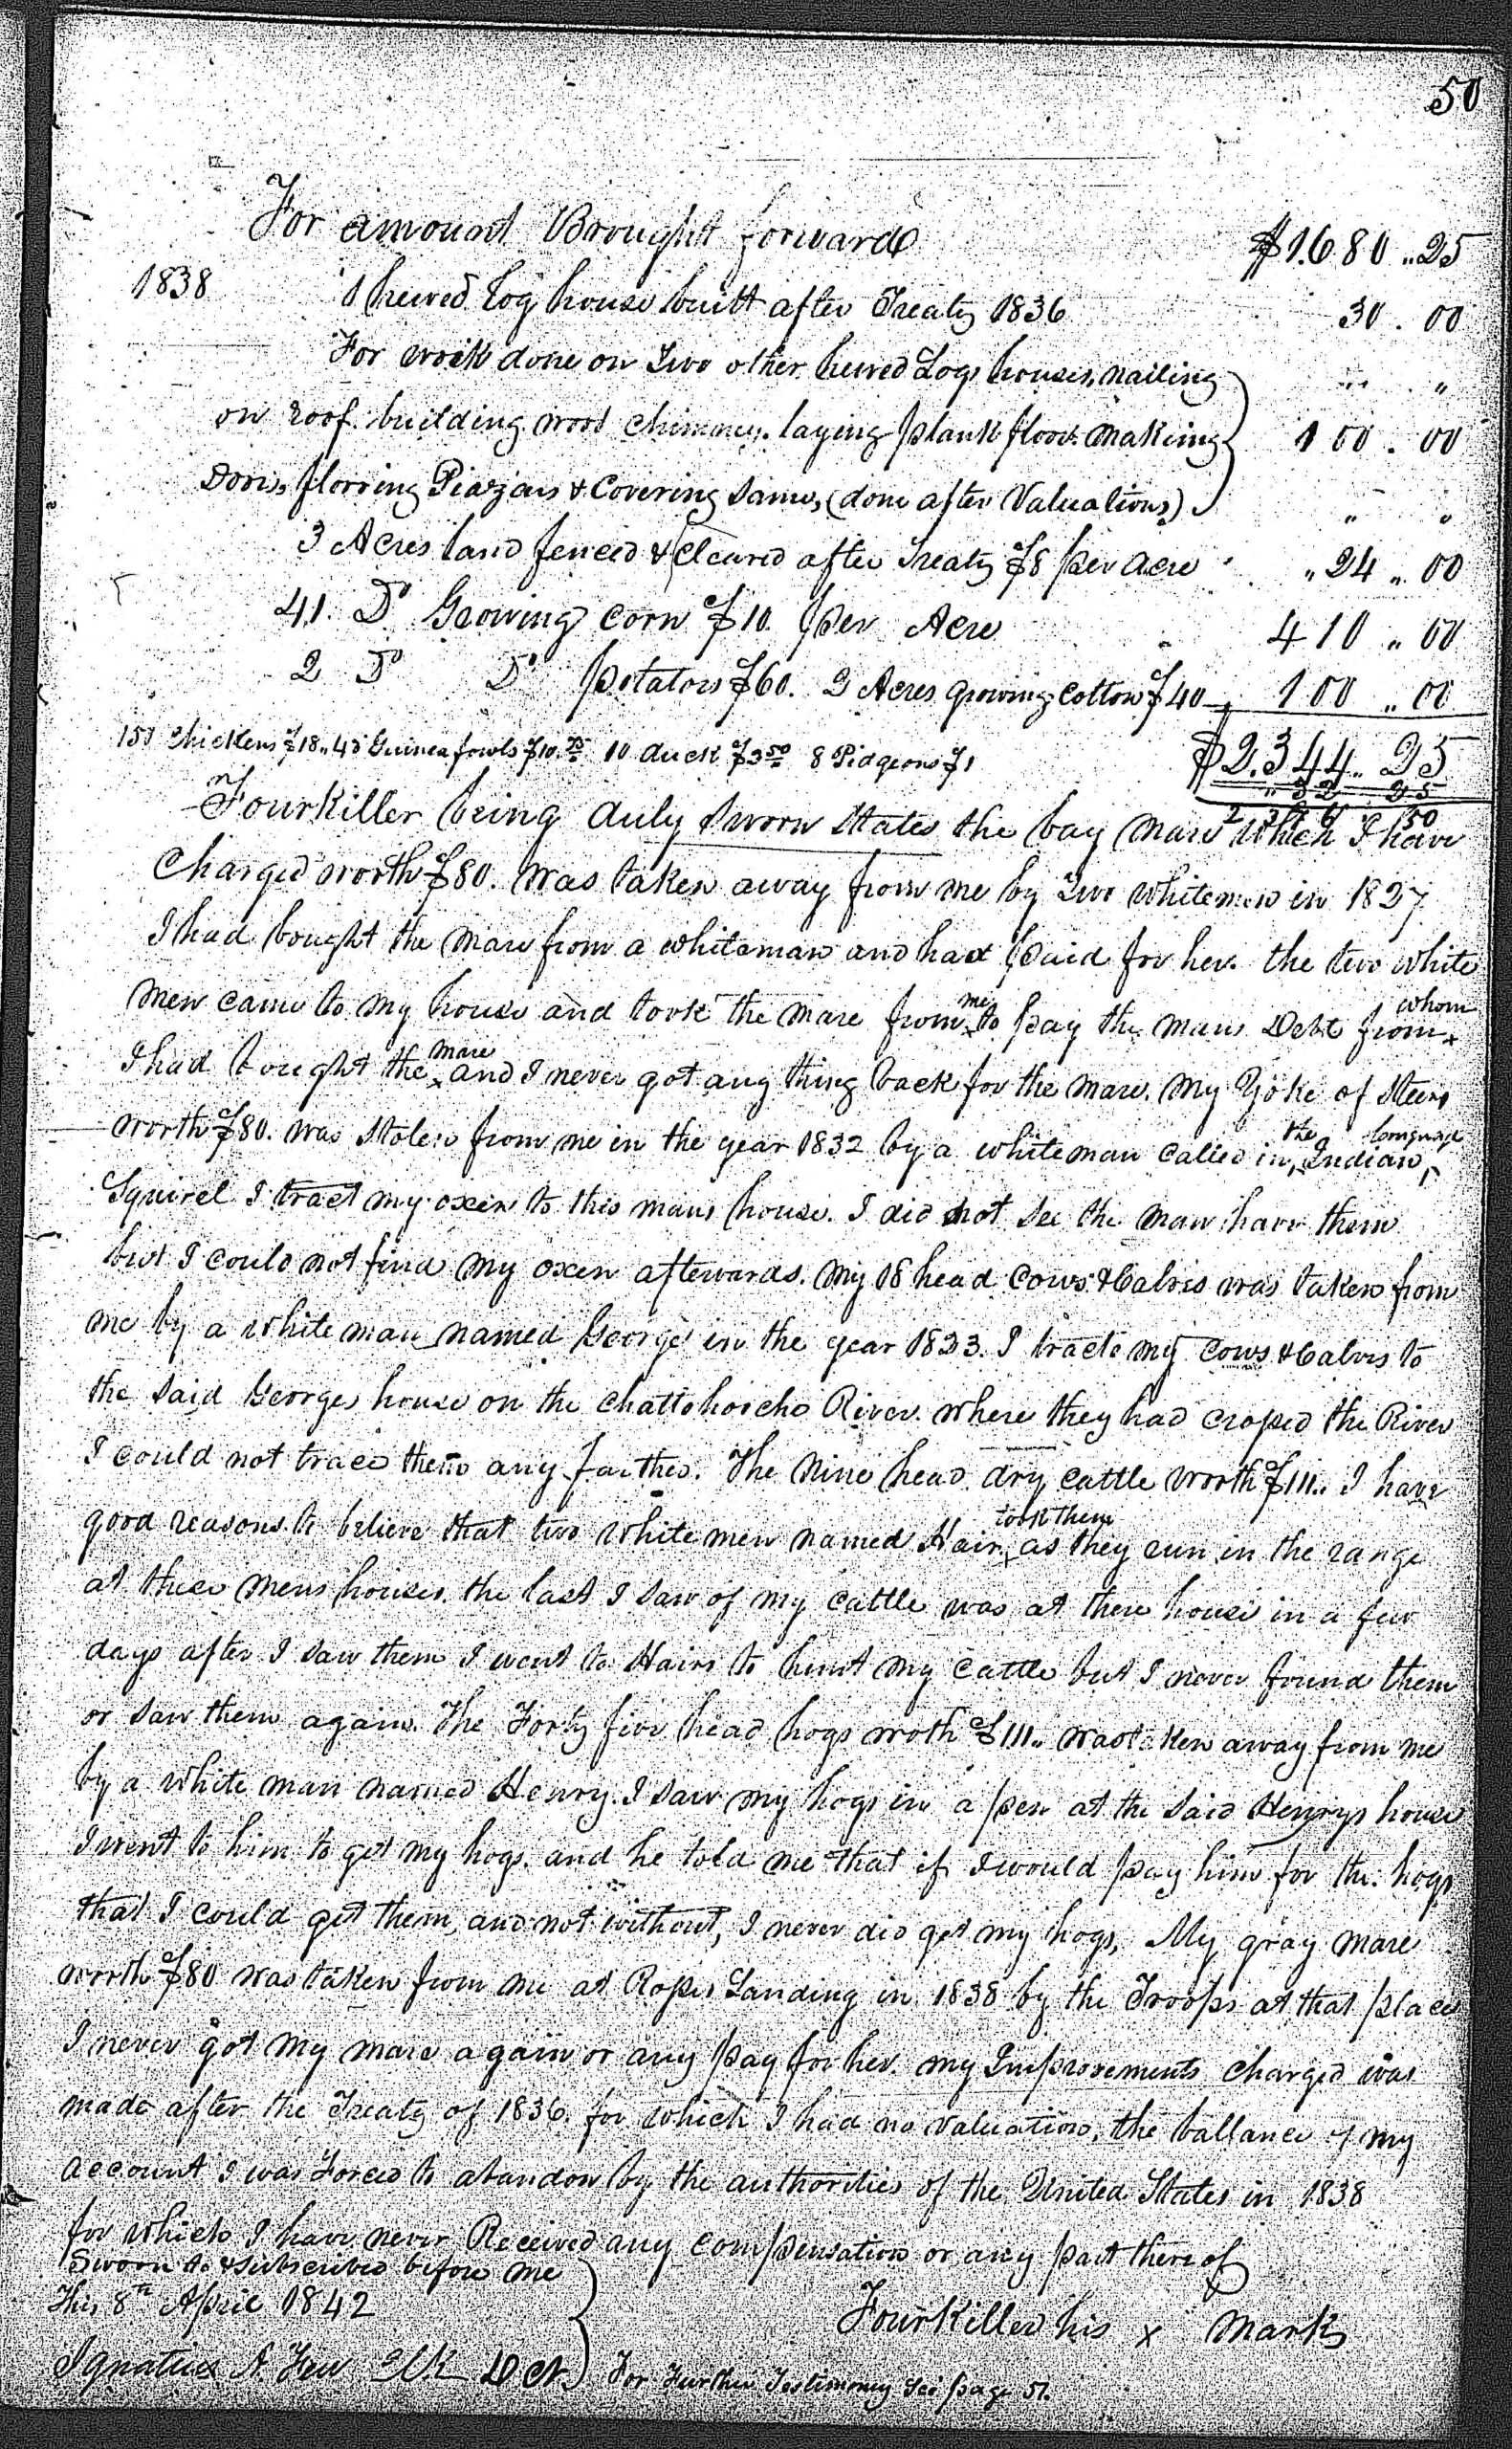 50
For amount Brought forward $1.680 .. 25
1838 1 hewed Log house built after Treaty 1836 30 . 00
For work done on Two other hewed Log houses, nailing " "
on roof. building wood chimney. laying plank floor. making 100 . 00
Doors, florring Piazzais & Covering same, (done after Valuations) " "
3 Acres land fenced & Cleared after Treaty $8 per acre " 24 .. 00
41. Do Growing Corn $10 per Acre 410 .. 00
2 Do Do potatoes $60. 2 Acres growing cotton $40 100 .. 00
150 Chickens $18 .. 43 Guinea fowls $10.75 10 duck $2.50 8 Pidgeons $1 $2.344 .. 25
" 32 25
2 376 50
FourKiller being duly sworn States the bay mare which I have
Charged worth $80. was taken away from me by Two whitemen in 1827
I had bought the mare from a whiteman and had paid for her. the two white
men came to my house and took the mare from me to pay the mans Debt from whom
I had bought the mare and I never got any thing back for the mare. My Yoke of Steers
worth $80. was Stolen from me in the year 1832 by a whiteman called in the Indian languag
Squirel I tract my oxen to this mans house. I did not see the man have them
but I could not find my oxen afterwards. My 18 head Cows & Calvis was taken from
me by a white man named George in the year 1833. I tracte my Cows & Calvis to
the said Georges house on the Chattohoiche River. where they had crosed the River
I could not trace them any farther. The Nine head dry cattle worth $111.. I have
good reasons to believe that two white men named Hair took them as they run in the range
at these mens houses. the last I saw of my cattle was at there house in a few
days after I saw them I went to Hairs to hunt my cattle but I never found them
or saw them again. The Forty five head hogs woth $111.. was taken away from me
by a white man named Henry. I saw my hogs in a pen at the said Henrys house
I went to him to get my hogs. and he told me that if I would pay him for the hogs
that I could get them, and not without, I never did get my hogs, My gray mare
worth $80 was taken from me at Roses Landing in 1838 by the Troops at that place
I never got my mare again or any pay for her. my Improvements charged was
made after the Treaty of 1836. for which I had no valuation, the ballance of my
account I was Forced to abandon by the authorities of the United States in 1838
for which I have never Received any compensation or any part there of
Sworn to & subscribed before me
This 8th April 1842
FourKiller his x mark
Ignatius A. Few Clk D Ct For Further Testimony See page 51.